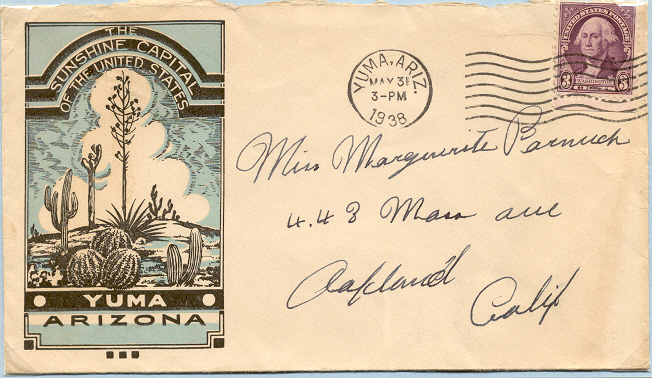 THE
SUNSHINE CAPITAL
OF THE UNITED STATES
YUMA
ARIZONA
YUMA, ARIZ.
MAY 31
3-PM
1938
UNITED STATES POSTAGE
3 3
WASHINGTON
Miss Marguerite
443 Mass ave
Oakland
Calif